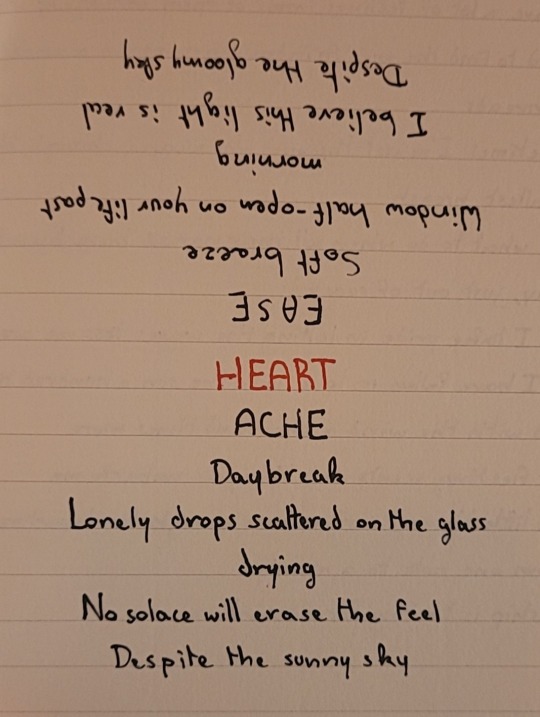 HEART
ACHE
Daybreak
Lonely drops scattered on the glass
drying
No solace will erase the feel
Despite the sunny sky
EASE
Soft breeze
Window half-open on your life past
morning
I believe this light is real
Despite the gloomy sky